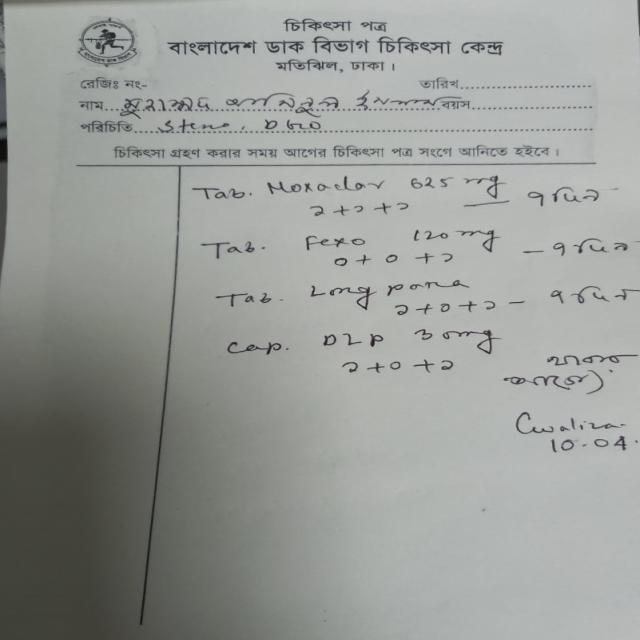 চিকিৎসা পত্র
বাংলাদেশ ডাক বিভাগ চিকিৎসা কেন্দ্র
মতিঝিল, ঢাকা।
রেজিঃ নং- তারিখ
নাম মুহাম্মদ আনিছুল ইসলাম বয়স
পরিচিতি Steno, DGO
চিকিৎসা গ্রহণ করার সময় আগের চিকিৎসা পত্র সংগে আনিতে হইবে।
Tab. Moxaclav 625 mg
১+১+১ — ৭ দিন
Tab. Fexo 120 mg
০+০+১ – ৭ দিন
Tab. Longpara
১+০+১ – ৭ দিন
Cap. DLP 30mg
১+০+১ খাবার
আগে)
10.04.